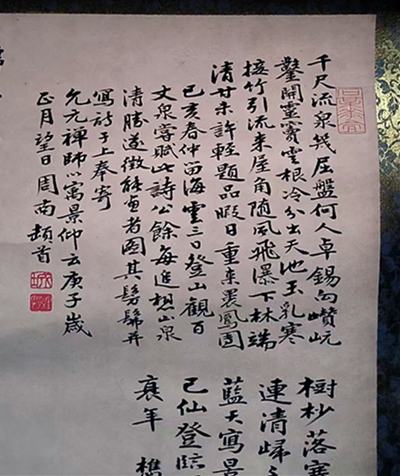 千尺流泉幾屈盤何人卓錫向巑岏
鑿開靈竇雲根冷分出天池玉乳寒
接竹引流来屋角随風飛瀑下林端
清甘未許輕題品暇日重来裹鳳團
己亥春仲海雲三日登山觀百
丈泉嘗賦此詩公餘每追想山泉
清勝遂徵能畫者圖其髣髴并
寫詩于上奉寄
允元禪師以寓景仰云庚子歲
正月望日周南頓首
樹杪落寒
連清歸
藍天寫景
己仙登臨
衰年樵